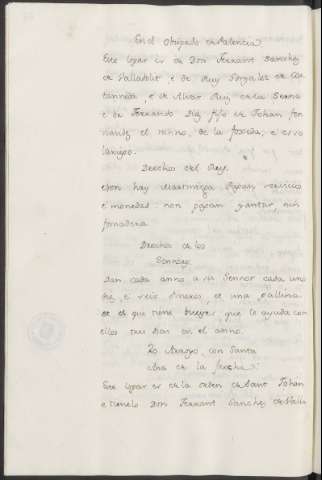 En el Obispado de Palencia
Este logar es de Don Ferrant Sanchez
de Valladolit e de Ruy Gonzalez de Cas
tanneda, e de Alvar Ruy de la Serna
e de Fernando Diaz fijo de Johan Fer
nandez el ninno, de la foseda, e es so
lariego.
Derechos del Rey.
eson hay Martiniega Pagan servicios
e monedas: non pagan yantar, nin
fonsadera
Derechos de los
Sennores
Dan cada anno a su Sennor cada uno
seis dineros, et una gallina
et el que tiene bueyes que le ayuda con
ellos tres dias en el anno.
20 Arroyo, con Santa
de la
Este logar es de la orden de Sant Johan
e tienelo Don Ferrant Sanchez de Valla